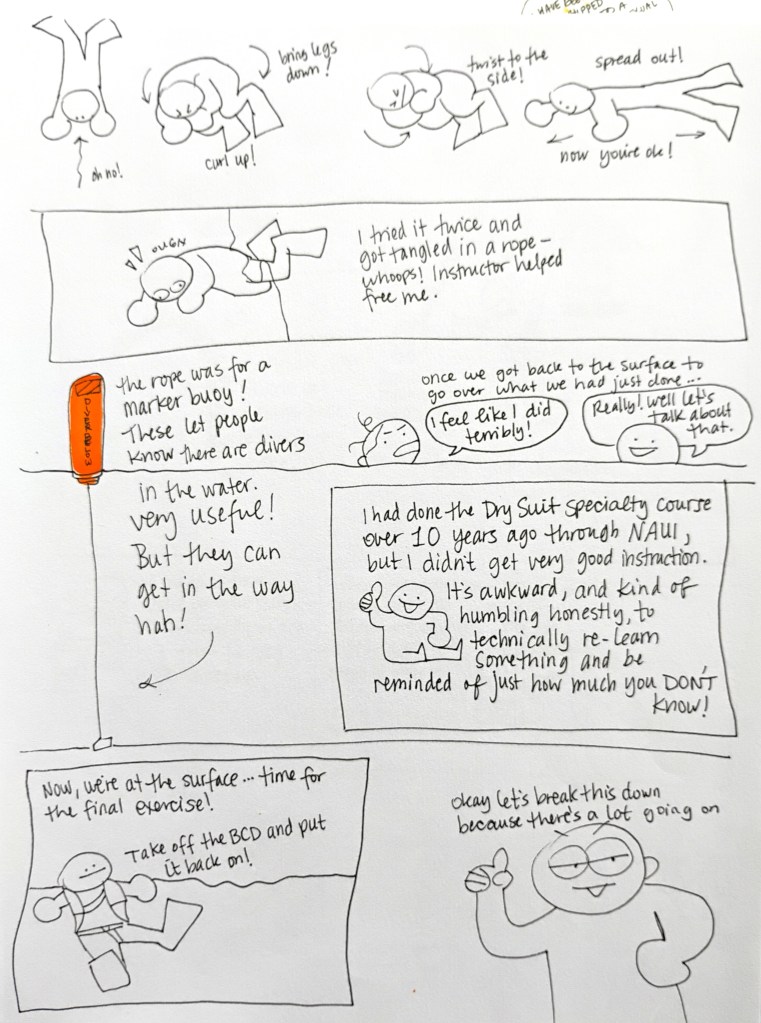 HAVE BEE
oh no!
bring legs
down!
curl up!
twist to the
side!
spread out!
now you're ok!
OUGH
I tried it twice and
got tangled in a rope –
whoops! Instructor helped
free me.
the rope was for a
marker buoy!
These let people
know there are divers
in the water.
very useful!
But they can
get in the way
hah!
once we got back to the surface to
go over what we had just done...
I feel like I did
terribly!
Really! well let's
talk about
that.
I had done the Dry Suit Specialty Course
over 10 years ago through NAUI,
but I didn't get very good instruction.
It's awkward, and kind of
humbling honestly, to
technically re-learn
something and be
reminded of just how much you DON'T
know!
Now, we're at the surface... time for
the final exercise!
Take off the BCD and put
it back on!
okay let's break this down
because there's a lot going on